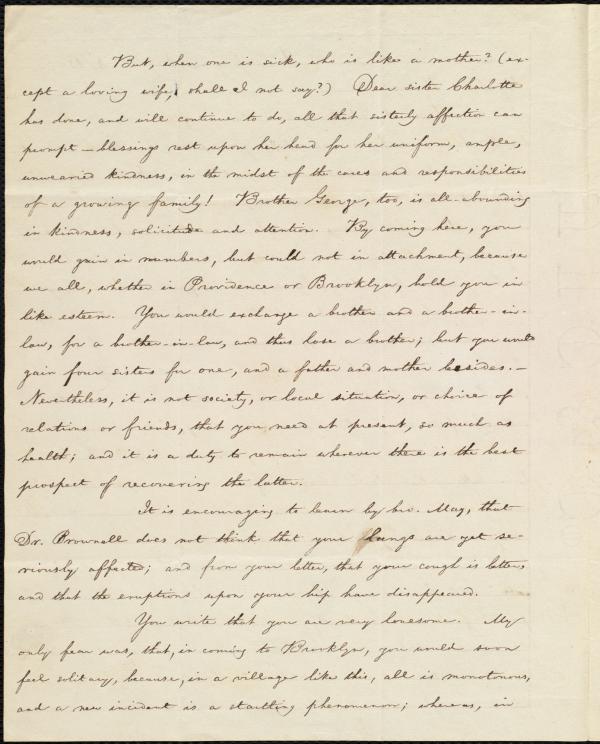 But, when one is sick, who is like a mother? (ex-
cept a loving wife, shall I not say?) Dear sister Charlotte
has done, and will continue to do, all that sisterly affection can
prompt — blessings rest upon her head for her uniform, ample,
unwearied kindness, in the midst of the cares and responsibilities
of a growing family! Brother George, too, is all-abounding
in kindness, solicitude and attention. By coming here, you
would gain in numbers, but could not in attachment, because
we all, whether in Providence or Brooklyn, hold you in
like esteem. You would exchange a brother and a brother-in-
law, for a brother-in-law, and thus lose a brother; but you would
gain four sisters for one, and a father and mother besides. —
Nevertheless, it is not society, or local situation, or choice of
relations or friends, that you need at present, so much as
health; and it is a duty to remain wherever there is the best
prospect of recovering the latter.
It is encouraging to learn by bro. May, that
Dr. Brownell does not think that your lungs are yet se-
riously affected; and from your letter, that your cough is better,
and that the eruptions upon your hip have disappeared.
You write that you are very lonesome. My
only fear was, that, in coming to Brooklyn, you would soon
feel solitary, because, in a village like this, all is monotonous,
and a new incident is a startling phenomenon; whereas, in